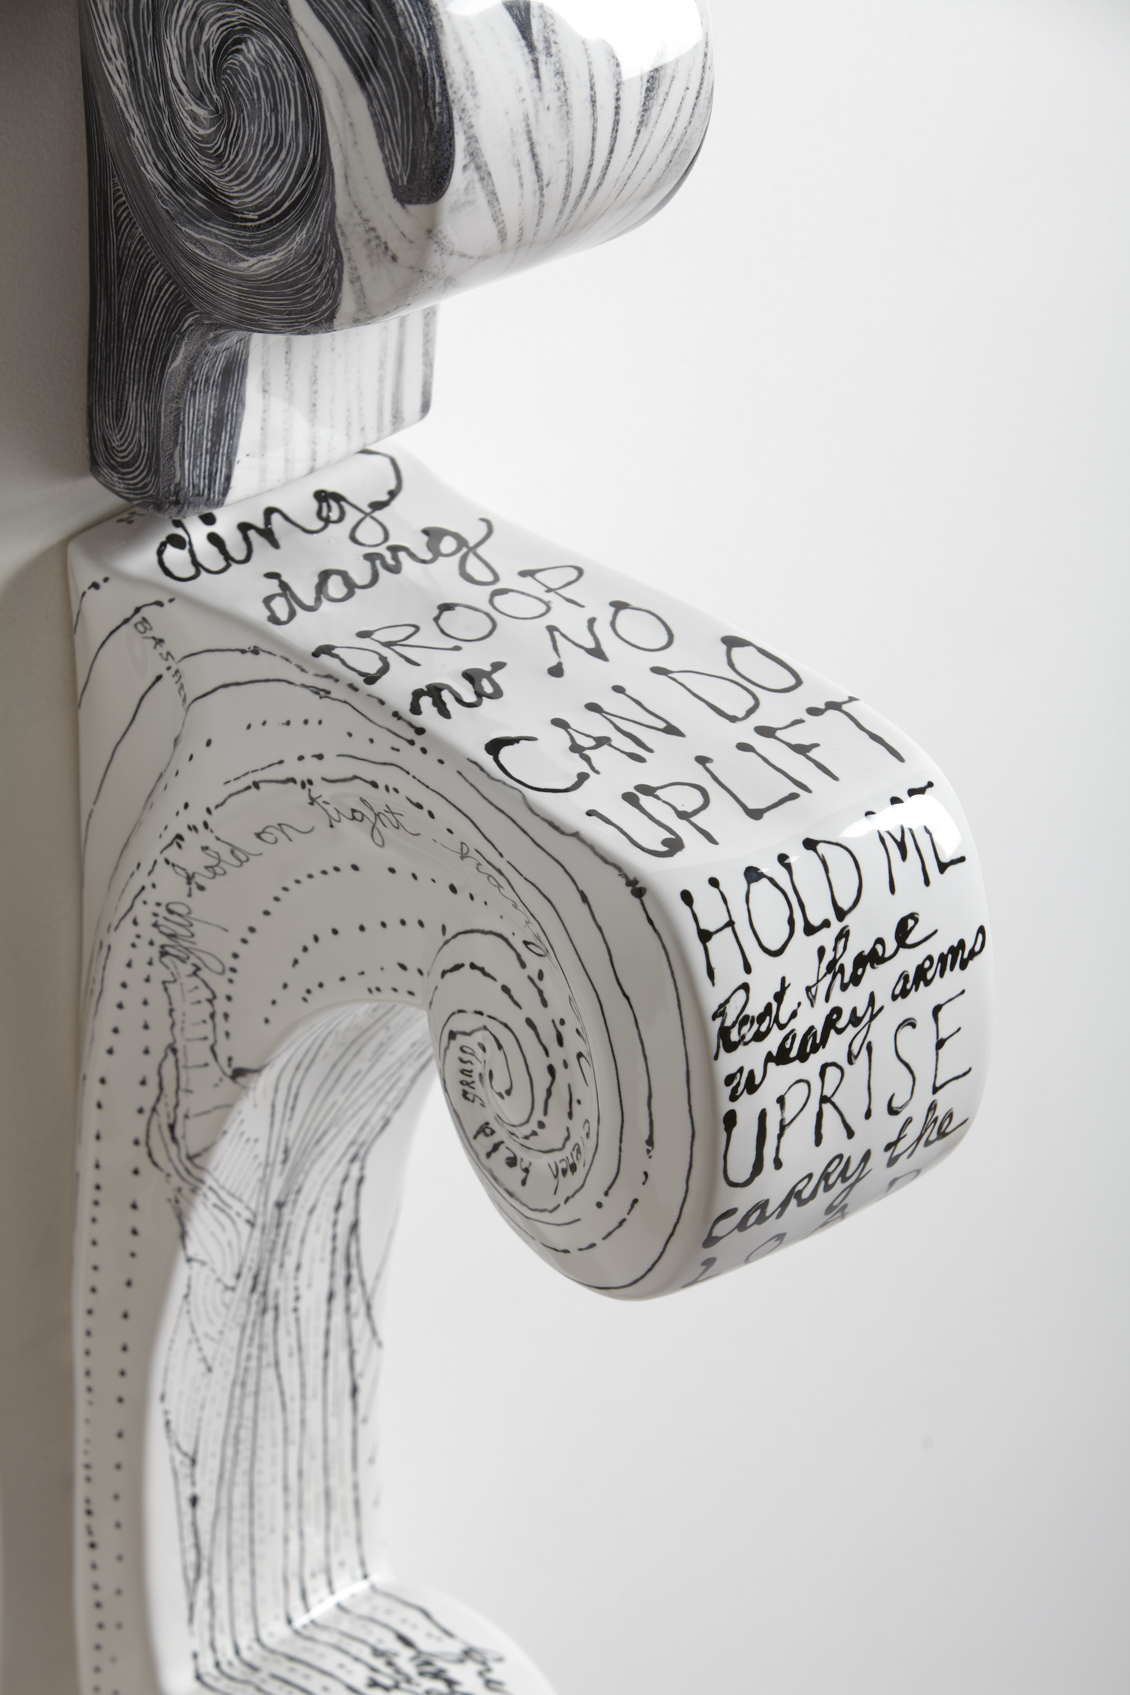 ding
dang
DROOP
no NO
CAN DO
UPLIFT
HOLD ME
Rest those
weary arms
UPRISE
carry the
LOAD
grip hold on tight
grasp
held
clench